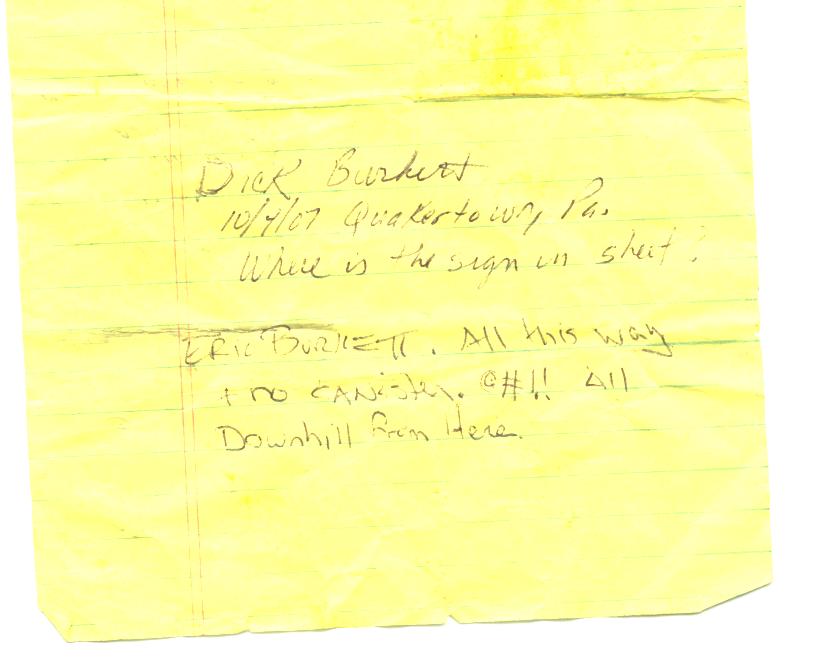 Dick Burkett
10/4/07 Quakertown, Pa.
Where is the sign in sheet?
ERIC BURKETT. All this way
+ no CANister. @#!! All
Downhill from Here.